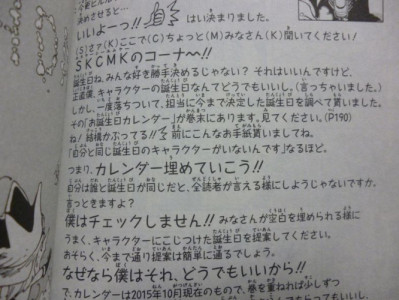 決めさせると…
いいよーっ!! はい決まりました。
(S)さァ(K)ここで(C)ちょっと(M)みなさん(K)聞いてください!
SKCMKのコーナ〜!!
誕生日ね、みんな好き勝手決めるじゃない? それはいいんですけど、
正直僕、キャラクターの誕生日なんてどうでもいいし。(言っちゃいました。)
しかし、一度落ちついて、担当に今まで決定した誕生日を調べて貰いました。
その「お誕生日カレンダー」が巻末にあります。見てください。(P190)
ね!結構かぶってる!! 前にこんなお手紙貰いましてね。
「自分と同じ誕生日のキャラクターがいないんです」なるほど。
つまり、カレンダー埋めていこう!!
自分は誰と誕生日が同じだと、全読者が言える様にしようじゃないですか。
言っときますよ?
僕はチェックしません!! みなさんが空白を埋められる様に
うまく、キャラクターにこじつけた誕生日を提案してください。
おそらく、今まで通り提案は簡単に通るでしょう。
なぜなら僕はそれ、どうでもいいから!!
で、カレンダーは2015年10月現在のもので、巻を重ねれば少しずつ